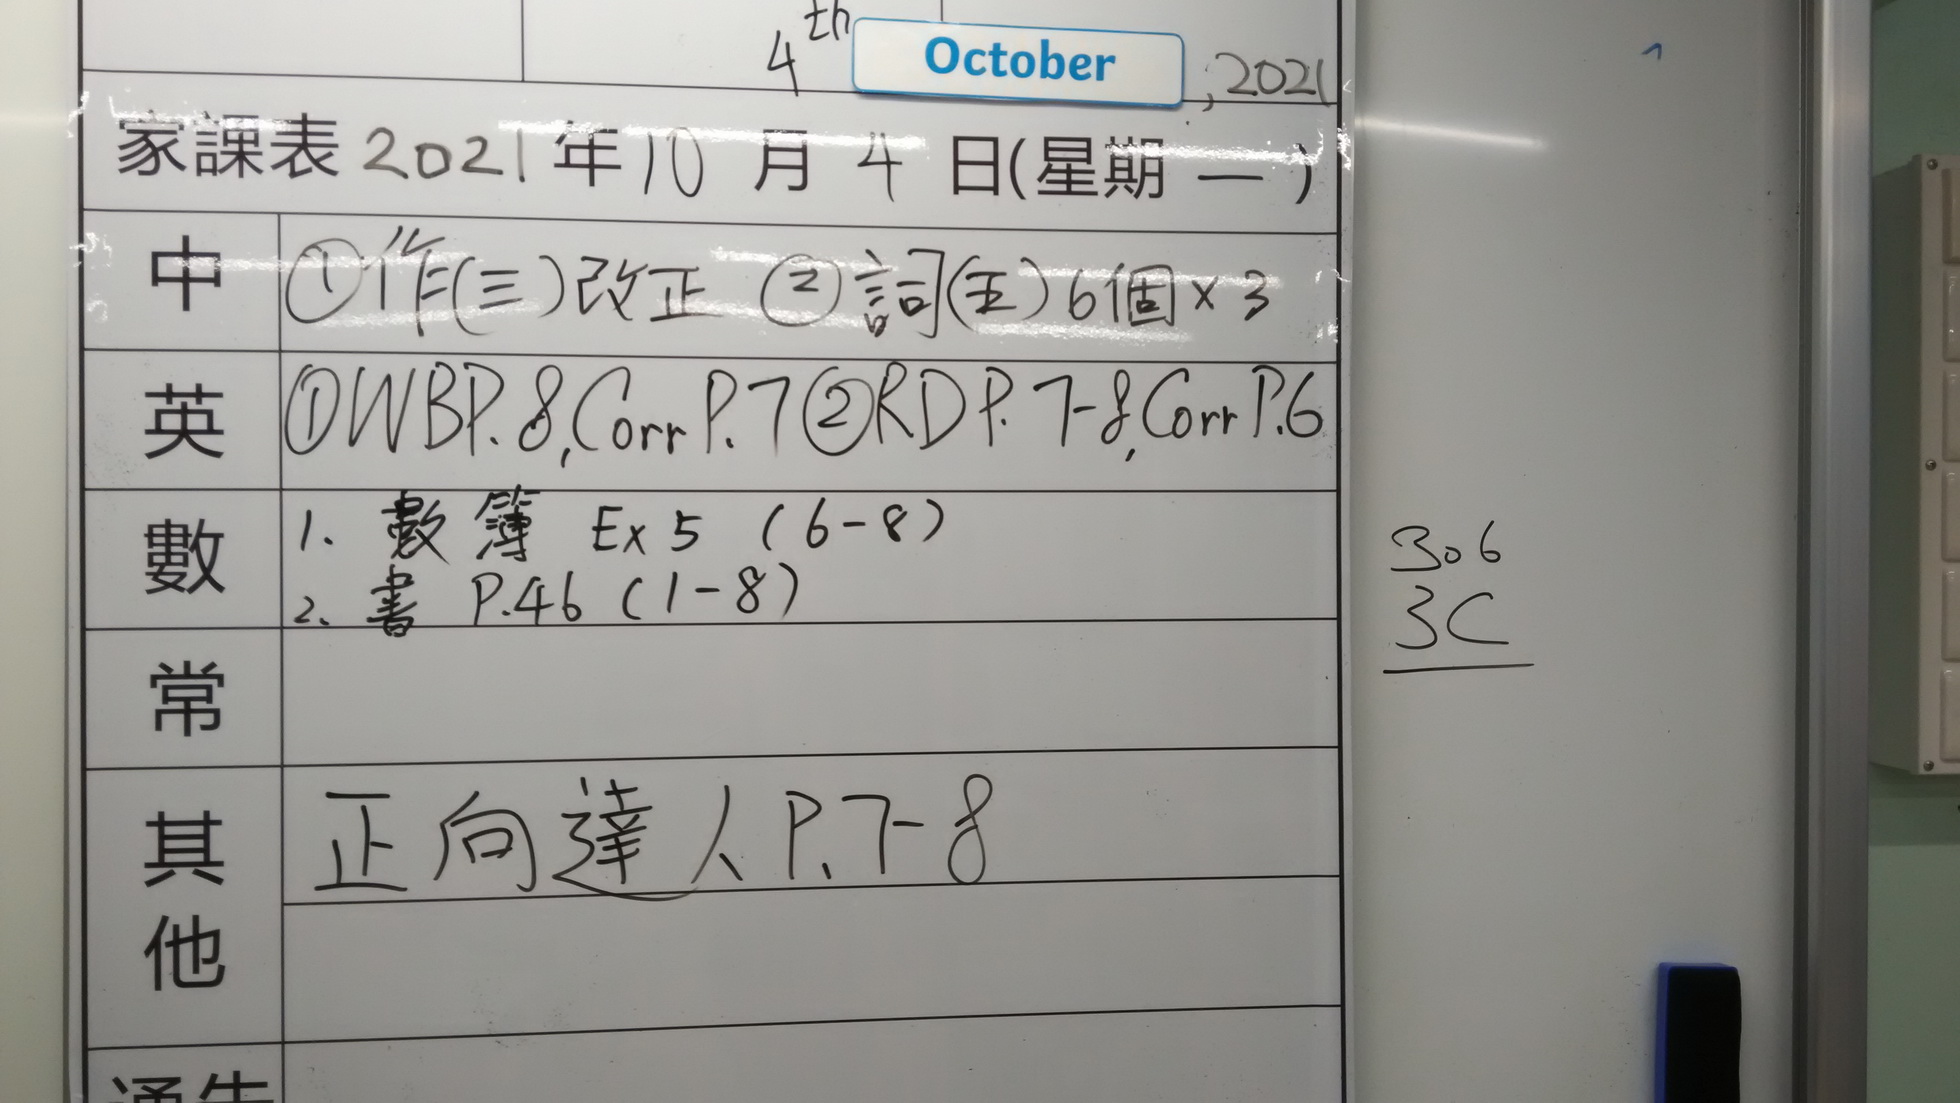 4th October, 2021
家課表 2021 年 10 月 4 日(星期 一 )
中 ①作(三)改正 ②詞(五)6個×3
英 ①WBP.8,Corr P.7②RD P.7-8,Corr P.6
數 1. 數簿 Ex 5 (6-8)
2. 書 P.46 (1-8)
306
3C
常
其他 正向達人P.7-8
通告